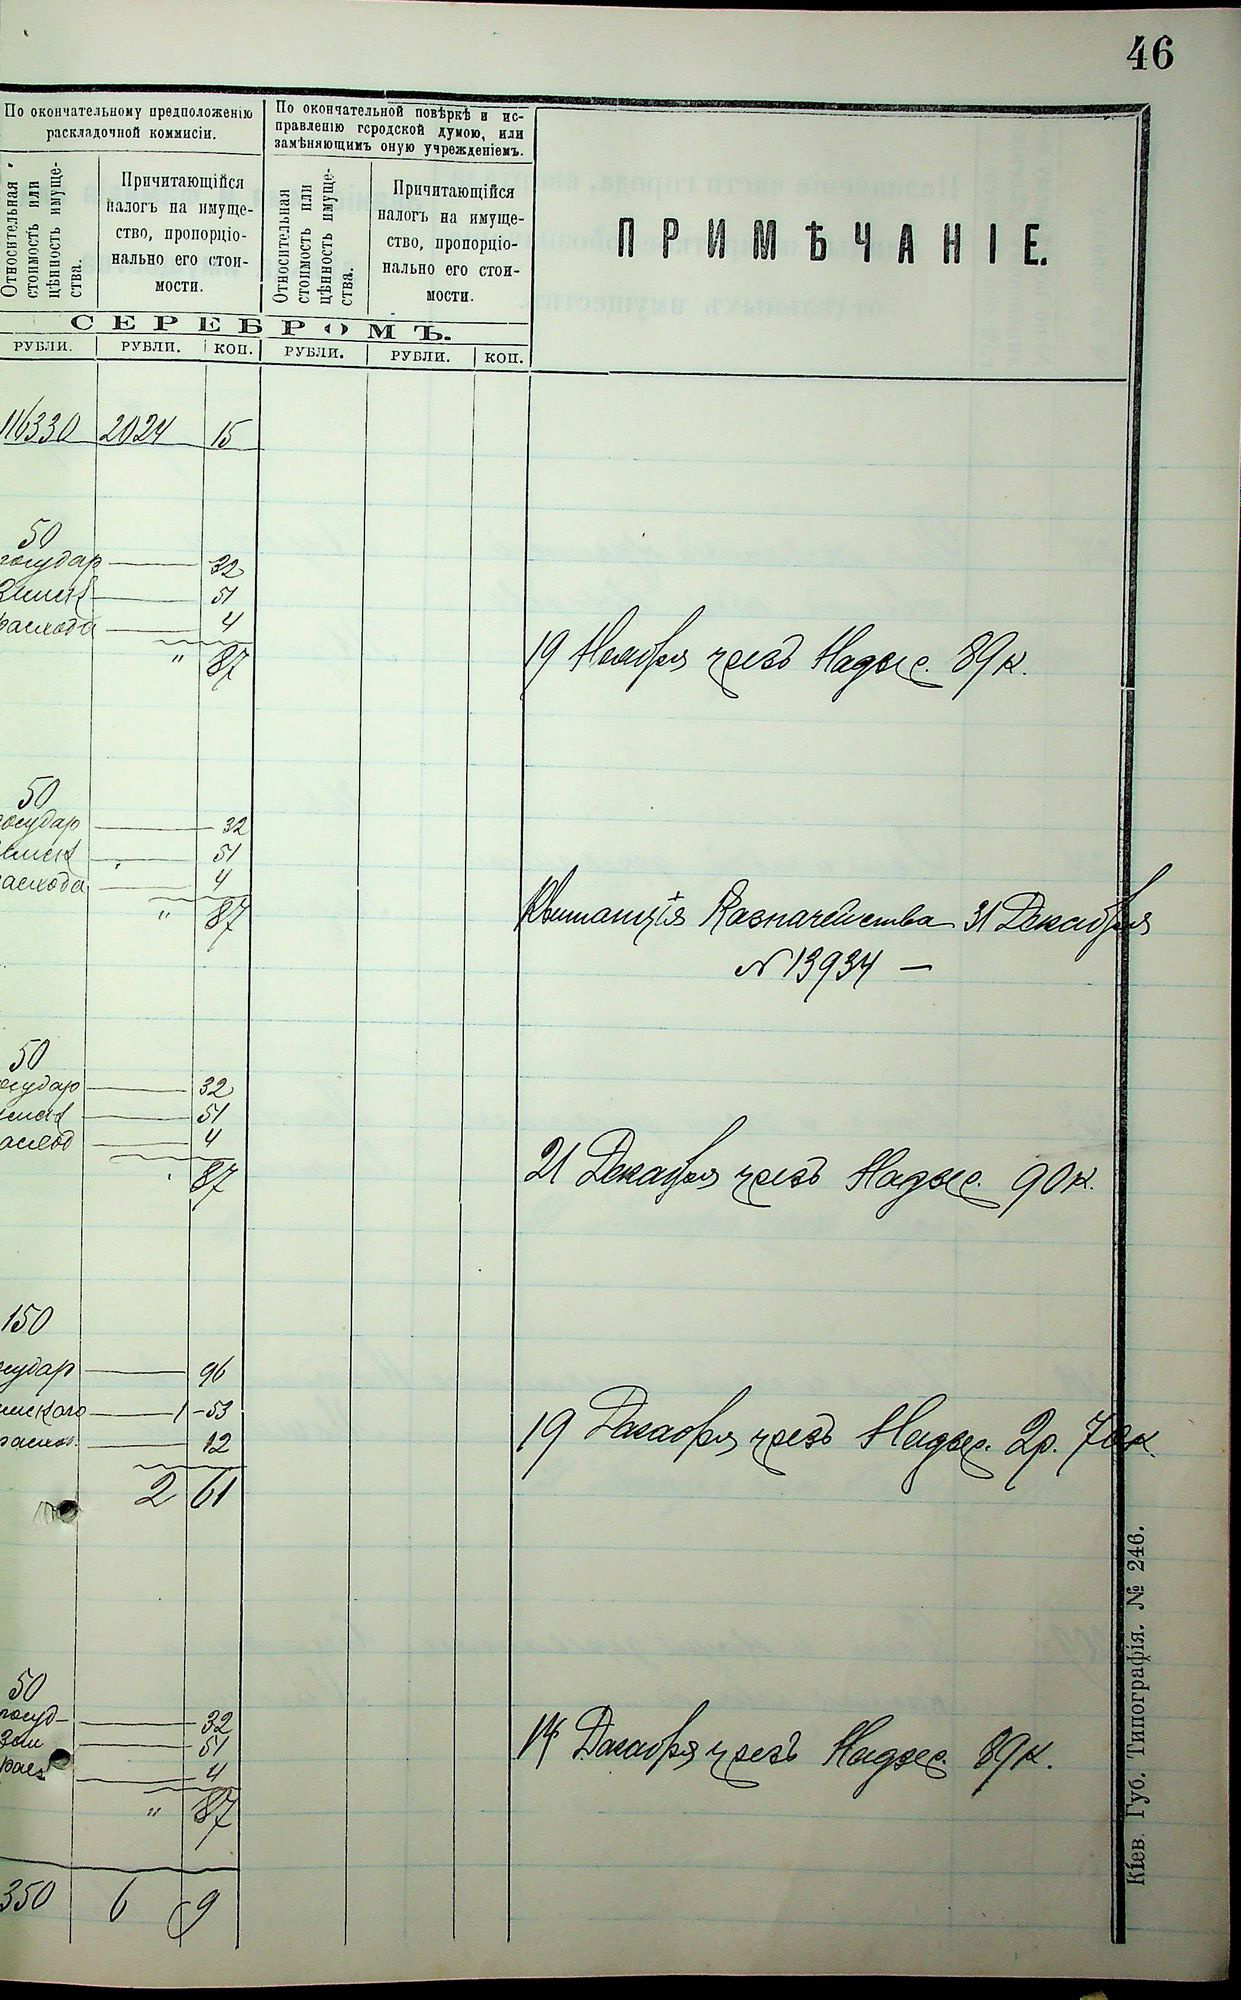 46
По окончательному предположенію
раскладочной коммисіи.
По окончательной повѣркѣ и ис-
правленію городской думою, или
замѣняющимъ оную учрежденіемъ.
Относительная
стоимость или
цѣнность имуще-
ства.
Причитающійся
налогъ на имуще-
ство, пропорціо-
нально его стои-
мости.
Относительная
стоимость или
цѣнность имуще-
ства.
Причитающійся
налогъ на имуще-
ство, пропорціо-
нально его стои-
мости.
ПРИМѢЧАНІЕ.
СЕРЕБРОМЪ.
РУБЛИ. РУБЛИ. КОП. РУБЛИ. РУБЛИ. КОП.
116330 2024 15
50
государ 32
земск 51
расхода 4
" 87
19 Ноября чрезъ Надзс. 89 к.
50
государ 32
емск 51
асхода 4
" 87
Квитанція Казначейства 31 Декабря
№ 13934 —
50
осудар 32
емск 51
асход 4
87
21 Декабря чрезъ Надзс. 90 к.
150
осудар 96
емского 1 - 53
расход. 12
2 61
19 Декабря чрезъ Надзс. 2 р. 70 к.
50
госуд 32
Зем 51
расх 4
" 87
Декабря чрезъ Надзс. 89 к.
350 6 9
Кіев. Губ. Типографія. № 246.